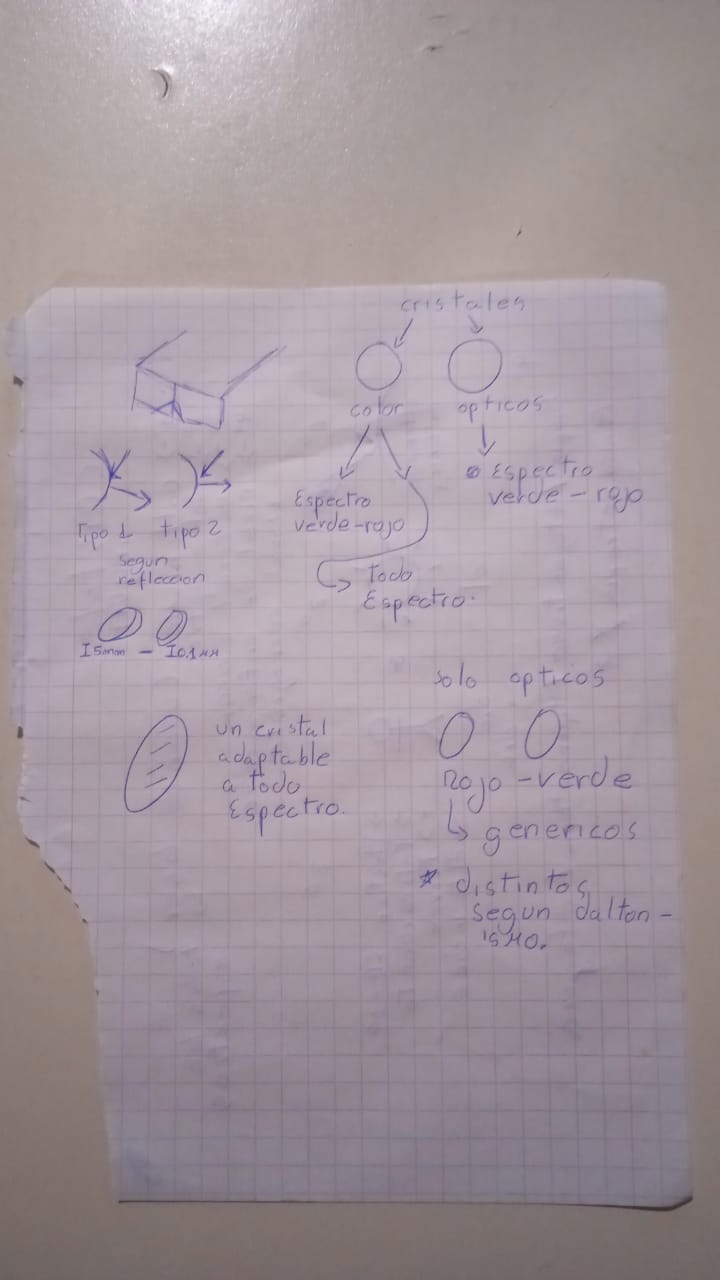 cristales
color opticos
Espectro
verde-rojo
Espectro
verde-rojo
todo
Espectro.
Tipo 1 tipo 2
segun
refleccion
I5mm - I0,1mm
un cristal
adaptable
a todo
Espectro.
solo opticos
Rojo-verde
genericos
* distintos
segun dalton-
ismo.